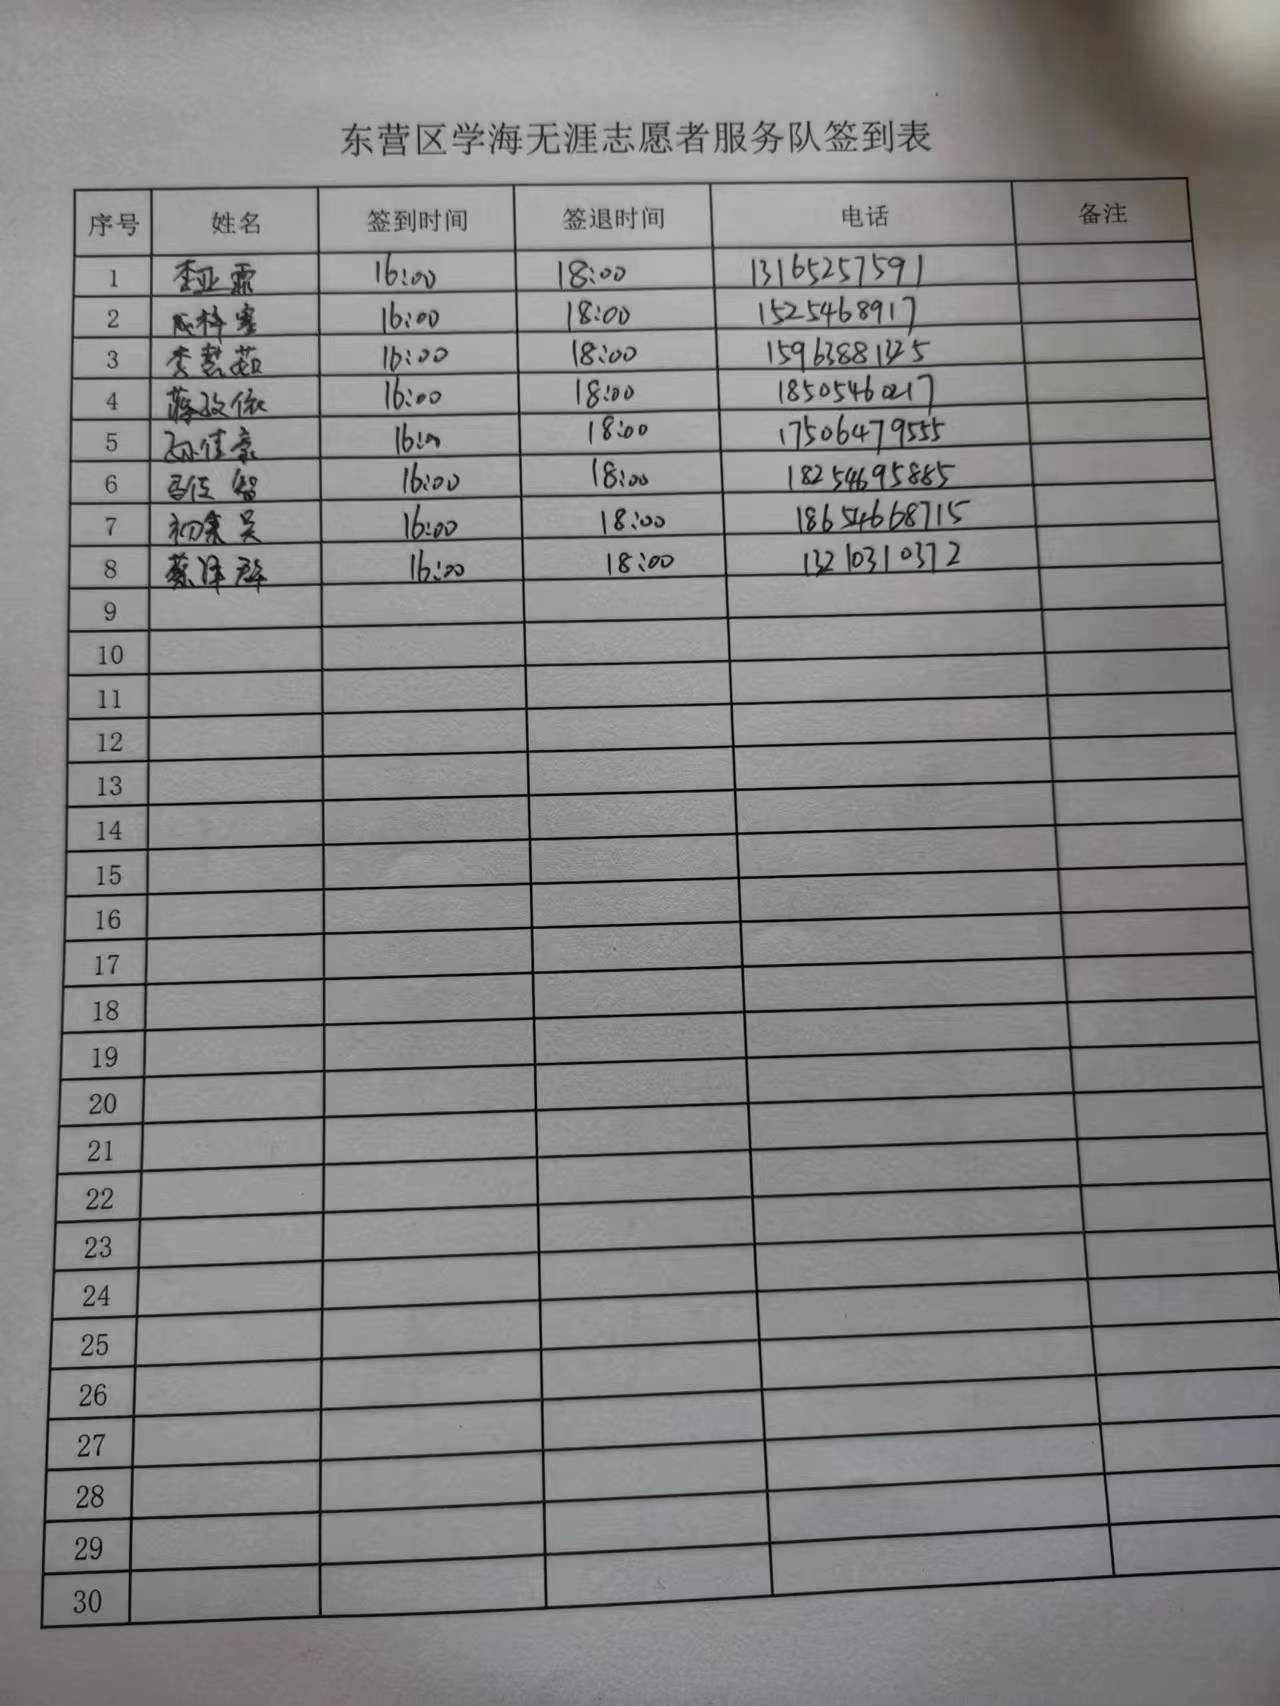 东营区学海无涯志愿者服务队签到表
序号 姓名 签到时间 签退时间 电话 备注
1 李亚霏 16:00 18:00 13165257591
2 16:00 18:00 1525468917
3 李慧茹 16:00 18:00 15963881325
4 蒋孜依 16:00 18:00 18505460217
5 孙佳豪 16:00 18:00 17506479555
6 马佐智 16:00 18:00 18254695885
7 初 吴 16:00 18:00 18654668715
8 蔡泽群 16:00 18:00 13210310372
9
10
11
12
13
14
15
16
17
18
19
20
21
22
23
24
25
26
27
28
29
30